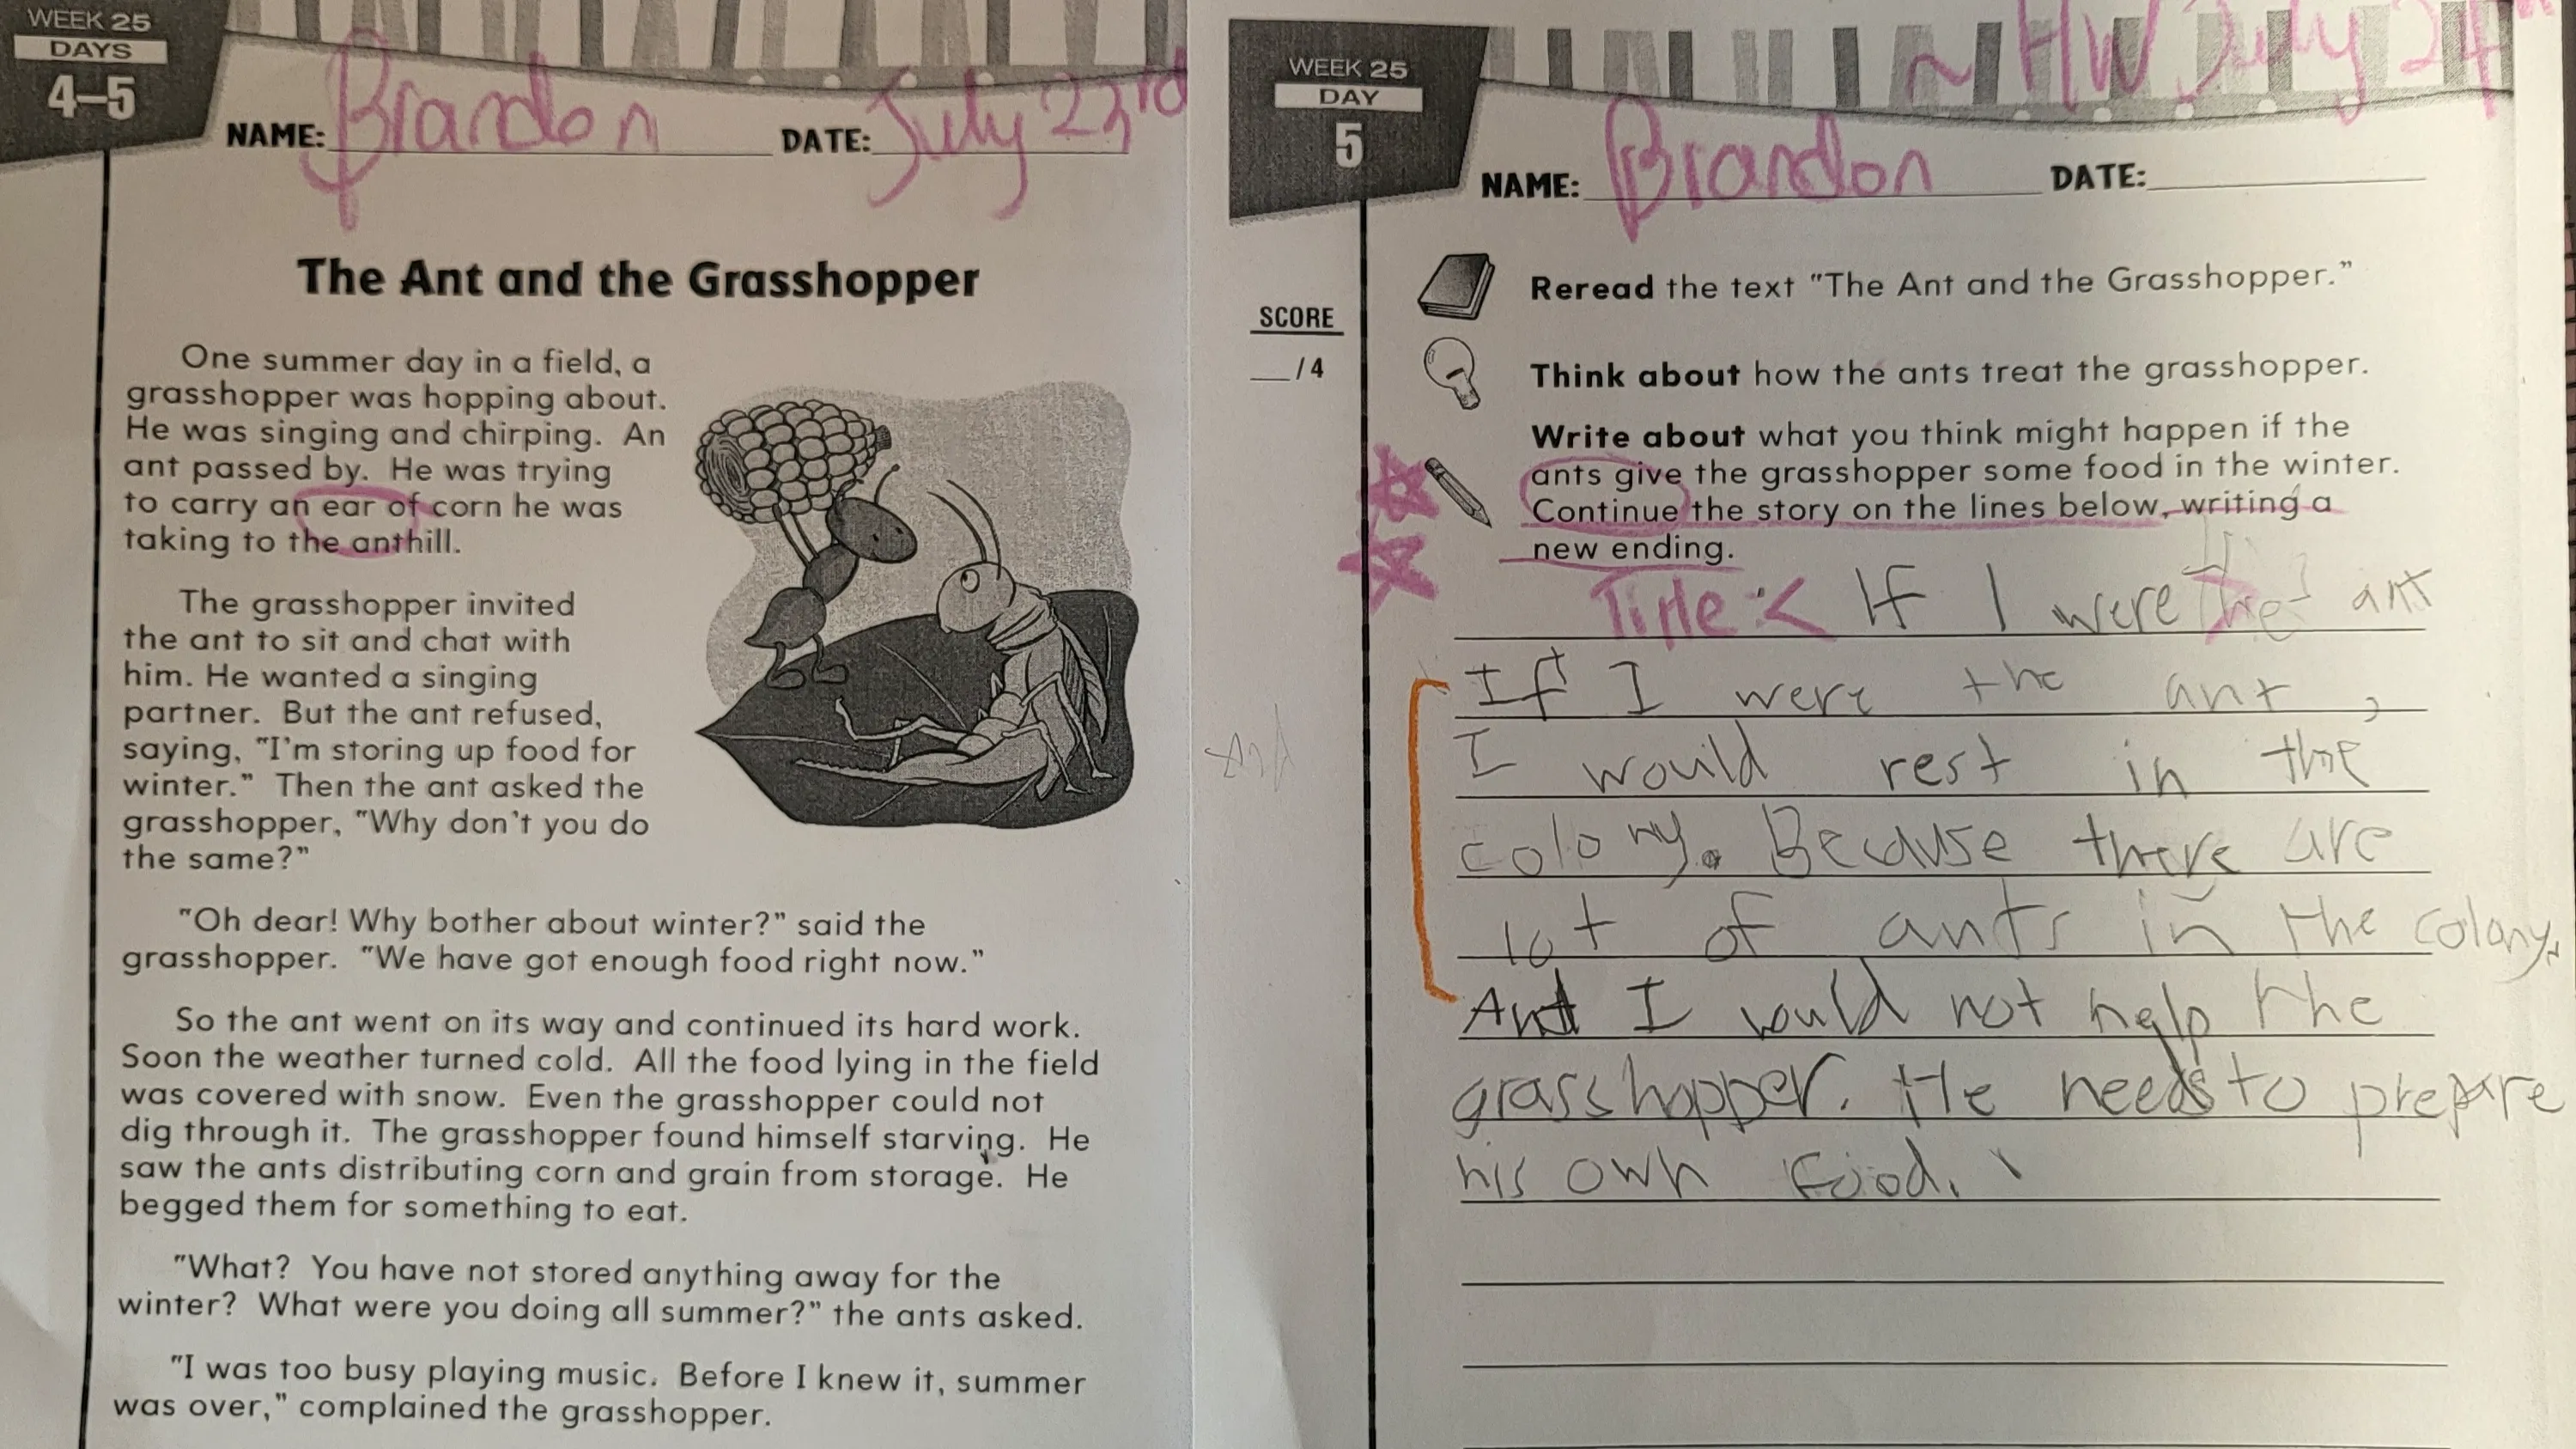 WEEK 25
DAYS
4–5
NAME: Brandon DATE: July 23rd
The Ant and the Grasshopper
One summer day in a field, a
grasshopper was hopping about.
He was singing and chirping. An
ant passed by. He was trying
to carry an ear of corn he was
taking to the anthill.
The grasshopper invited
the ant to sit and chat with
him. He wanted a singing
partner. But the ant refused,
saying, "I'm storing up food for
winter." Then the ant asked the
grasshopper, "Why don't you do
the same?"
"Oh dear! Why bother about winter?" said the
grasshopper. "We have got enough food right now."
So the ant went on its way and continued its hard work.
Soon the weather turned cold. All the food lying in the field
was covered with snow. Even the grasshopper could not
dig through it. The grasshopper found himself starving. He
saw the ants distributing corn and grain from storage. He
begged them for something to eat.
"What? You have not stored anything away for the
winter? What were you doing all summer?" the ants asked.
"I was too busy playing music. Before I knew it, summer
was over," complained the grasshopper.
~ HW July 24th
WEEK 25
DAY
5
NAME: Brandon DATE:
SCORE
/ 4
Reread the text "The Ant and the Grasshopper."
Think about how the ants treat the grasshopper.
Write about what you think might happen if the
ants give the grasshopper some food in the winter.
Continue the story on the lines below, writing a
new ending.
Title: < If I were the ant
If I were the ant,
I would rest in the
colony. Because there are
lot of ants in the colony.
And I would not help the
grasshopper. He needs to prepare
his own food.